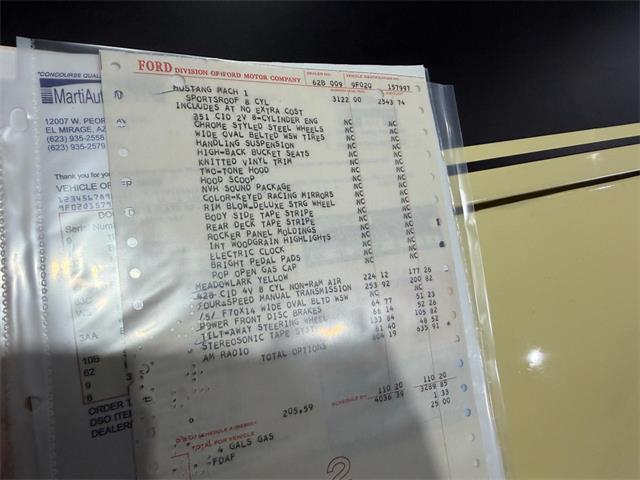 FORD DIVISION OF FORD MOTOR COMPANY
DEALER NO.
62B 009
VEHICLE IDENTIFICATION NO.
9F02Q 157997
MUSTANG MACH 1
SPORTSROOF 8 CYL 3122 00 2543 74
INCLUDES AT NO EXTRA COST
351 CID 2V 8-CYLINDER ENG NC NC
CHROME STYLED STEEL WHEELS NC NC
WIDE OVAL BELTED WSW TIRES NC NC
HANDLING SUSPENSION NC NC
HIGH-BACK BUCKET SEATS NC NC
KNITTED VINYL TRIM NC NC
TWO-TONE HOOD NC NC
HOOD SCOOP NC NC
NVH SOUND PACKAGE NC NC
COLOR-KEYED RACING MIRRORS NC NC
RIM BLOW DELUXE STRG WHEEL NC NC
BODY SIDE TAPE STRIPE NC NC
REAR DECK TAPE STRIPE NC NC
ROCKER PANEL MOLDINGS NC NC
INT WOODGRAIN HIGHLIGHTS NC NC
ELECTRIC CLOCK NC NC
BRIGHT PEDAL PADS NC NC
POP OPEN GAS CAP NC NC
MEADOWLARK YELLOW NC NC
428 CID 4V 8 CYL NON-RAM AIR 224 12 177 26
FOUR-SPEED MANUAL TRANSMISSION 253 92 200 82
F70X14 WIDE OVAL BLTD WSW NC NC
POWER FRONT DISC BRAKES 64 77 51 23
TILT-AWAY STEERING WHEEL
STEREOSONIC TAPE SYSTEM
AM RADIO
TOTAL OPTIONS
110 20 110 20
SCHEDULE B 4036 39 3289 85
1 33
25 00
205.59
TOTAL FOR VEHICLE
4 GALS GAS
FDAF
2
"CONCOURSE QUAL
MartiAut
12007 W. PEOR
EL MIRAGE, AZ
(623) 935-2558
(623) 935-2579
Thank you for you
VEHICLE OF
123456789
9F02Q1579
DO
Serial Num
3AA
10B
62
9
6
ORDER T
DSO ITE
DEALER